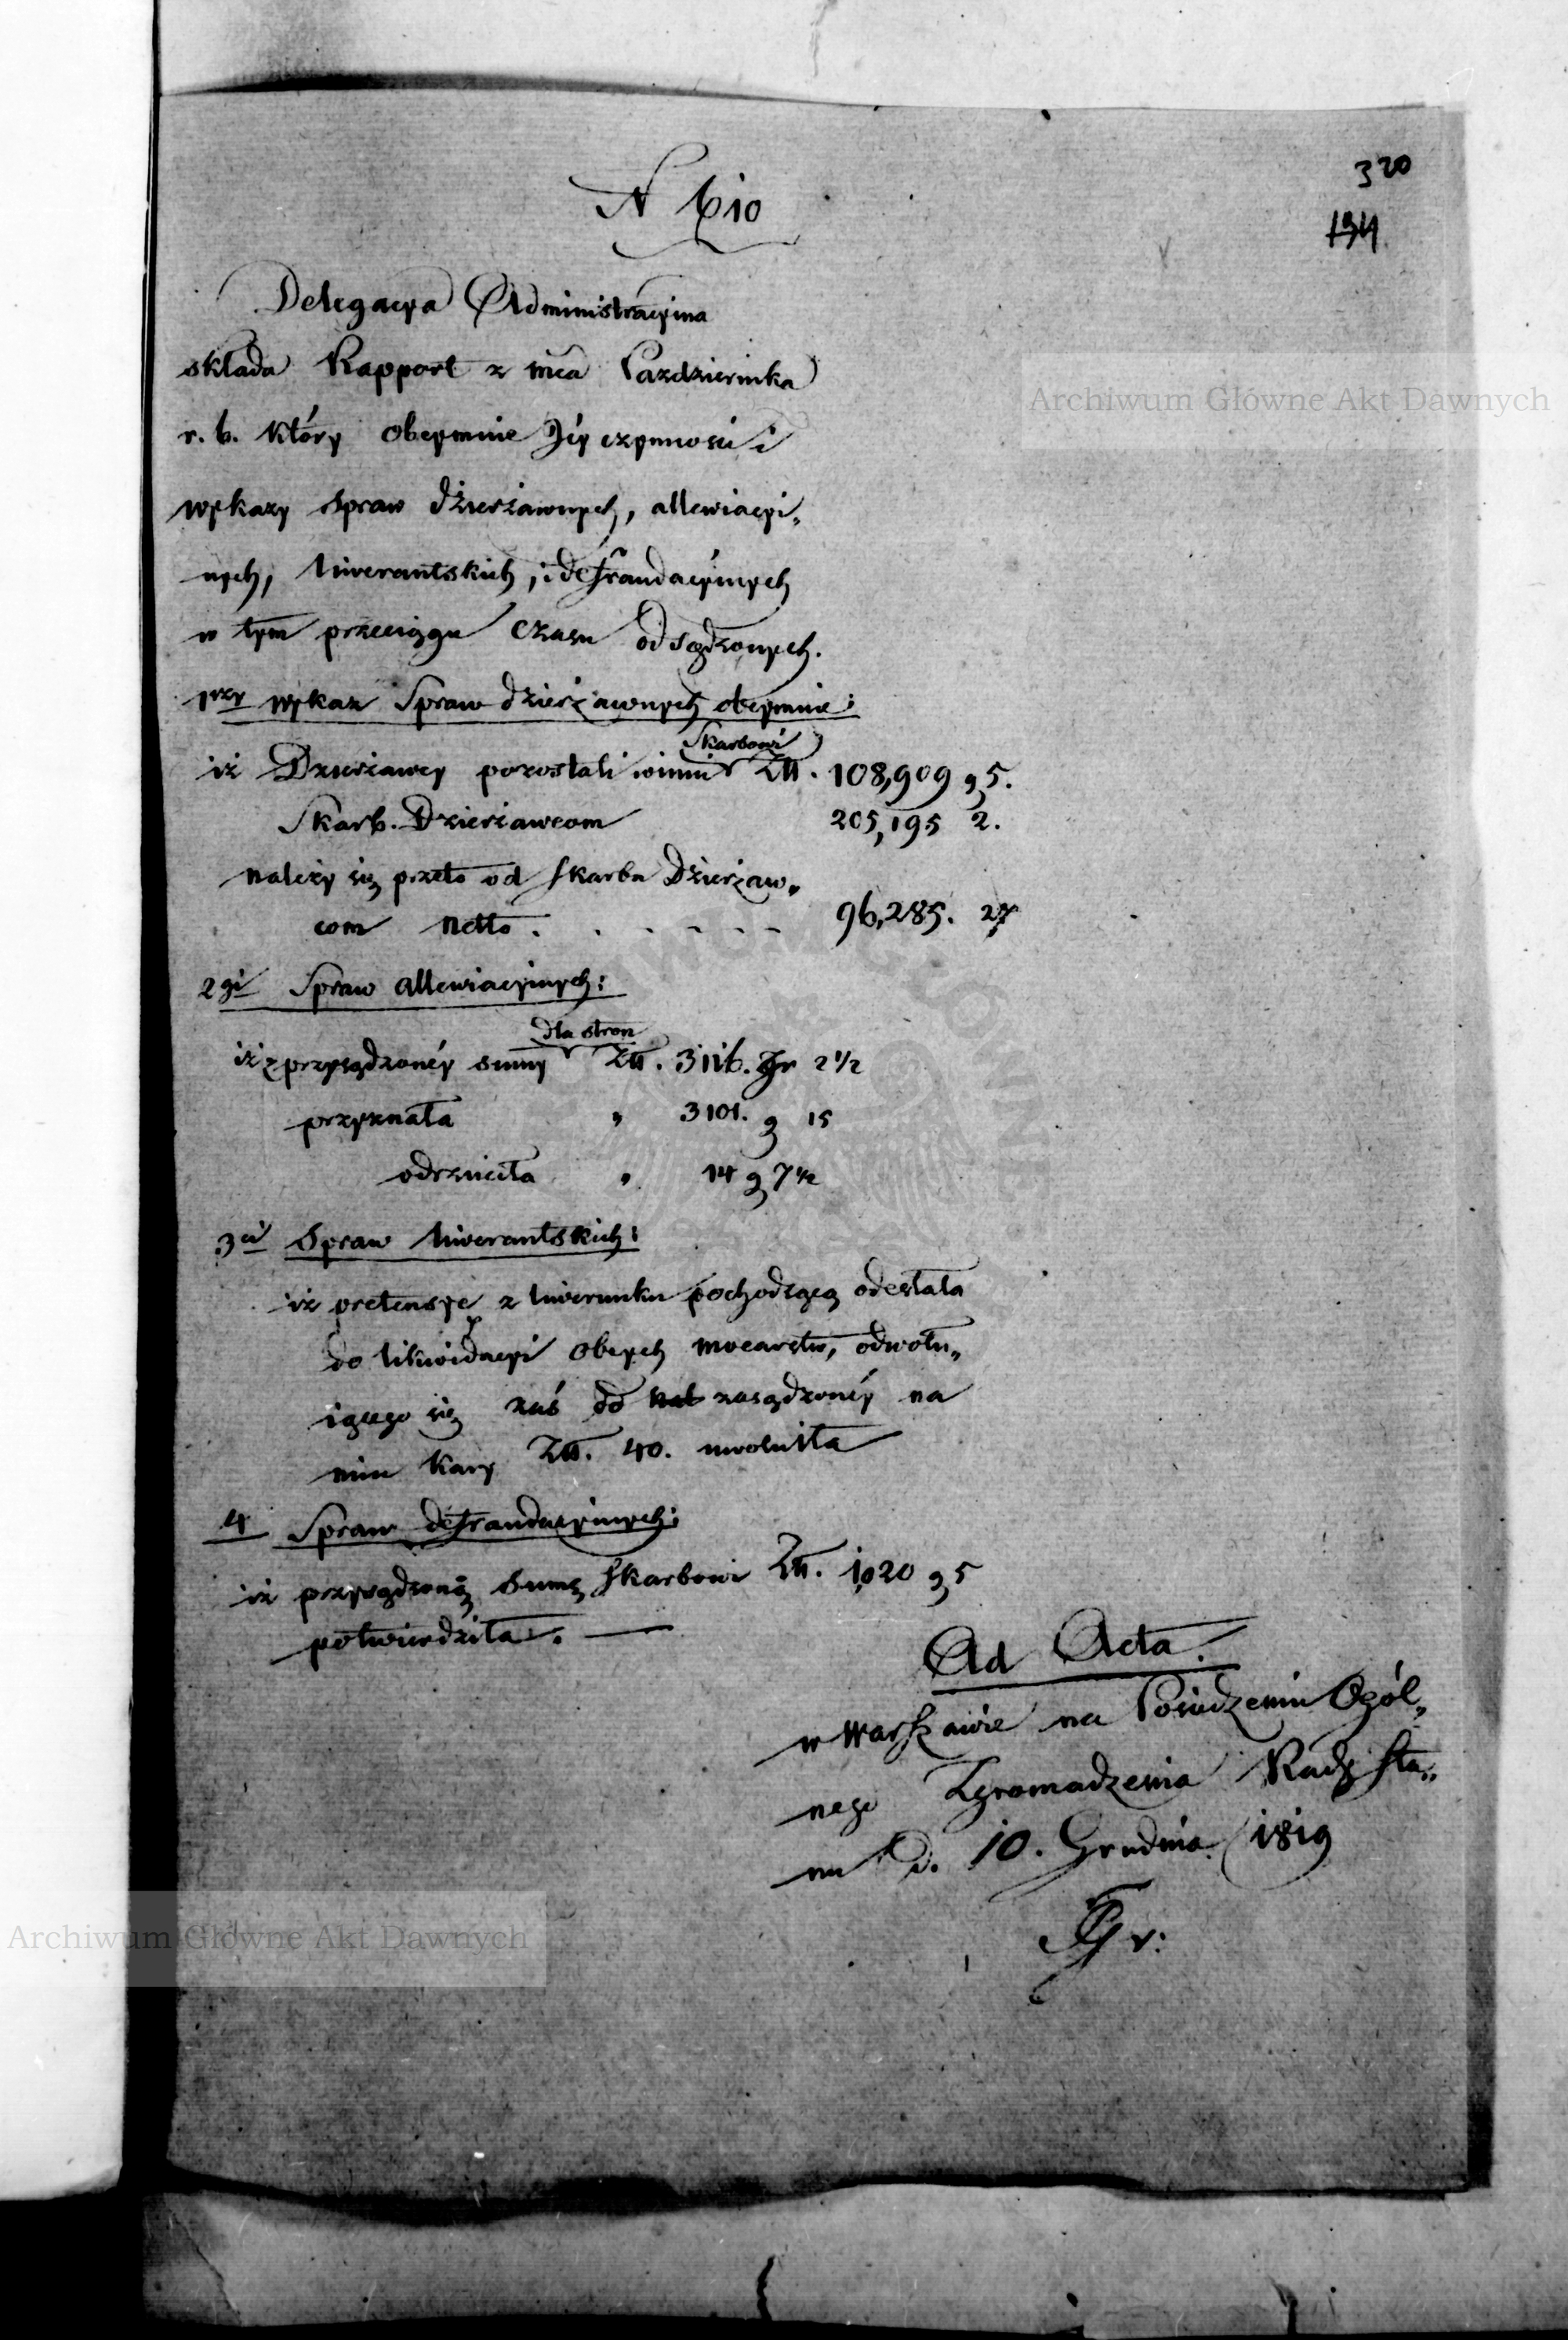 320
N 610
134
Delegacya Administracyina
składa Rapport z mca Pazdziernika
r. b. który obeymuie Jéy czynnosci i
wykazy spraw dzierżawnych, allewiacyi„
nych, liwerantskich, i defraudacyinych
w tym przeciągu czasu odsądzonych.
1szy wykaz Spraw dzierżawnych obeymuie:
Skarbowi
iż Dzierżawcy pozostali winni Złl. 108,909 g 5.
Skarb. Dzierżawcom 205,195 2.
należy się przeto od skarbu Dzierżaw„
com netto . . . - - - 96,285. 27
2gi Spraw allewiacyinych:
dla stron
iż z przysądzonéy summy Złl. 3116. gr 2 1/2
przyznała „ 3101. g 15
odrzuciła „ 14 g 7 1/2
3ci Spraw liwerantskich:
iż pretensye z liwerunku pochodzącą odesłała
do likwidacyi obcych mocarstw, odwołu„
iącego się zaś do zasądzonéy na
nim kary Złl. 40. uwolniła
4 Spraw defraudacyinych:
iż przysądzoną summę skarbowi Złl. 1,020 g 5
potwierdziła. —
Ad Acta.
w Warszawie na Posiedzeniu Ogól„
nego Zgromadzenia Rady Sta„
nu d. 10. Grudnia 1819
Archiwum Główne Akt Dawnych
Archiwum Główne Akt Dawnych